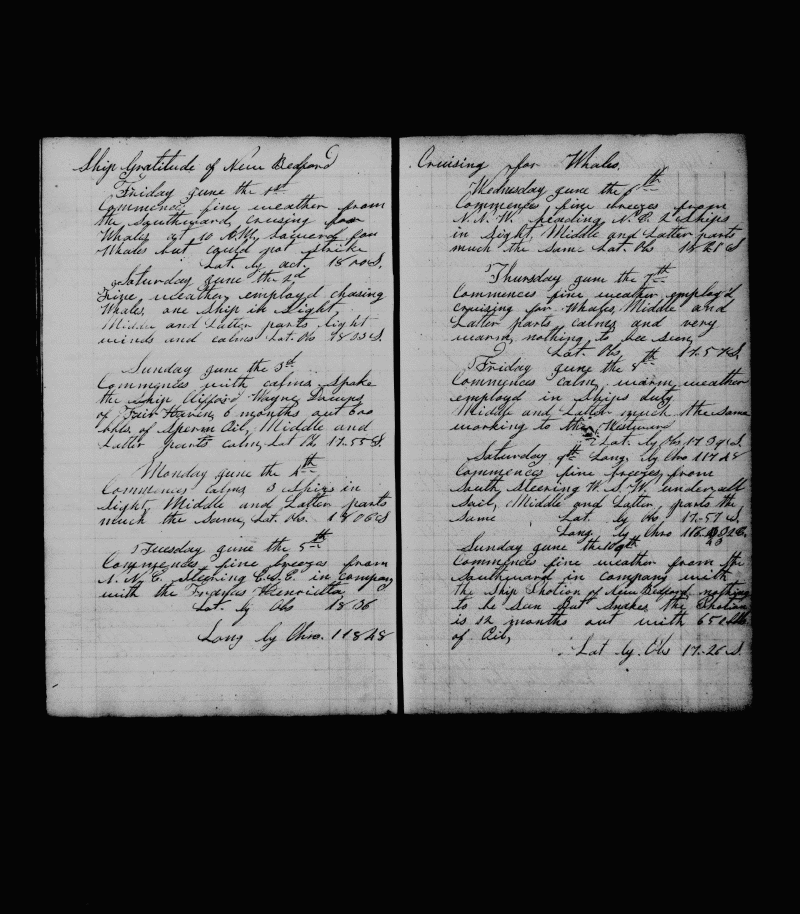 Ship Gratitude of New Bedford
Friday June the 1st
Commences fine weather from
the Southward, cruising for
Whales at 10 A.M. lowered for
Whales but could not strike
Lat. by act. 18
Saturday June the 2d
Fine weather employd chasing
Whales, one Ship in Sight,
Middle and Latter parts light
winds and calms Lat. Obs 18 03 S.
Sunday June the 3d
Commences with calms Spoke
the Ship Clifford Wayne
of Fair Haven 6 months out 600
bbls. of Sperm Oil, Middle and
Latter parts calm, Lat Obs 17.55 S.
Monday June the 4th
Commences calms 3 Ships in
Sight, Middle and Latter parts
much the Same, Lat. Obs. 18 06 S
Tuesday June the 5th
Commences fine breezes from
N. N. E. Steering E.S.E. in company
with the Henrietta
Lat. by Obs 18 36
Long by Chro. 118 28
Cruising for Whales.
Wednesday June the 6th
Commences fine breezes from
N.N.W. heading N.E. 2 Ships
in Sight, Middle and Latter parts
much the Same Lat. Obs 18 S
Thursday June the 7th
Commences fine weather employ'd
cruising for Whales, Middle and
Latter parts calms and very
warm, nothing to bee Seen,
Lat. Obs 17.57 S.
Friday June the 8th
Commences calm, warm weather
employd in Ships duty
Middle and Latter much the Same
working to the Westward
Lat. by Obs 17
Saturday 9th Long. by Chro 117 28
Commences fine breezes from
South, Steering W.S.W. under all
Sail, Middle and Latter parts the
Same Lat. by Obs 17.57 S.
Long by Chro 116
Sunday June the
Commences fine weather from the
Southward in company with
the Ship of New Bedford nothing
to be Seen But the
is 12 months out with 650 bbls
of Oil,
Lat by. Obs 17.26 S.